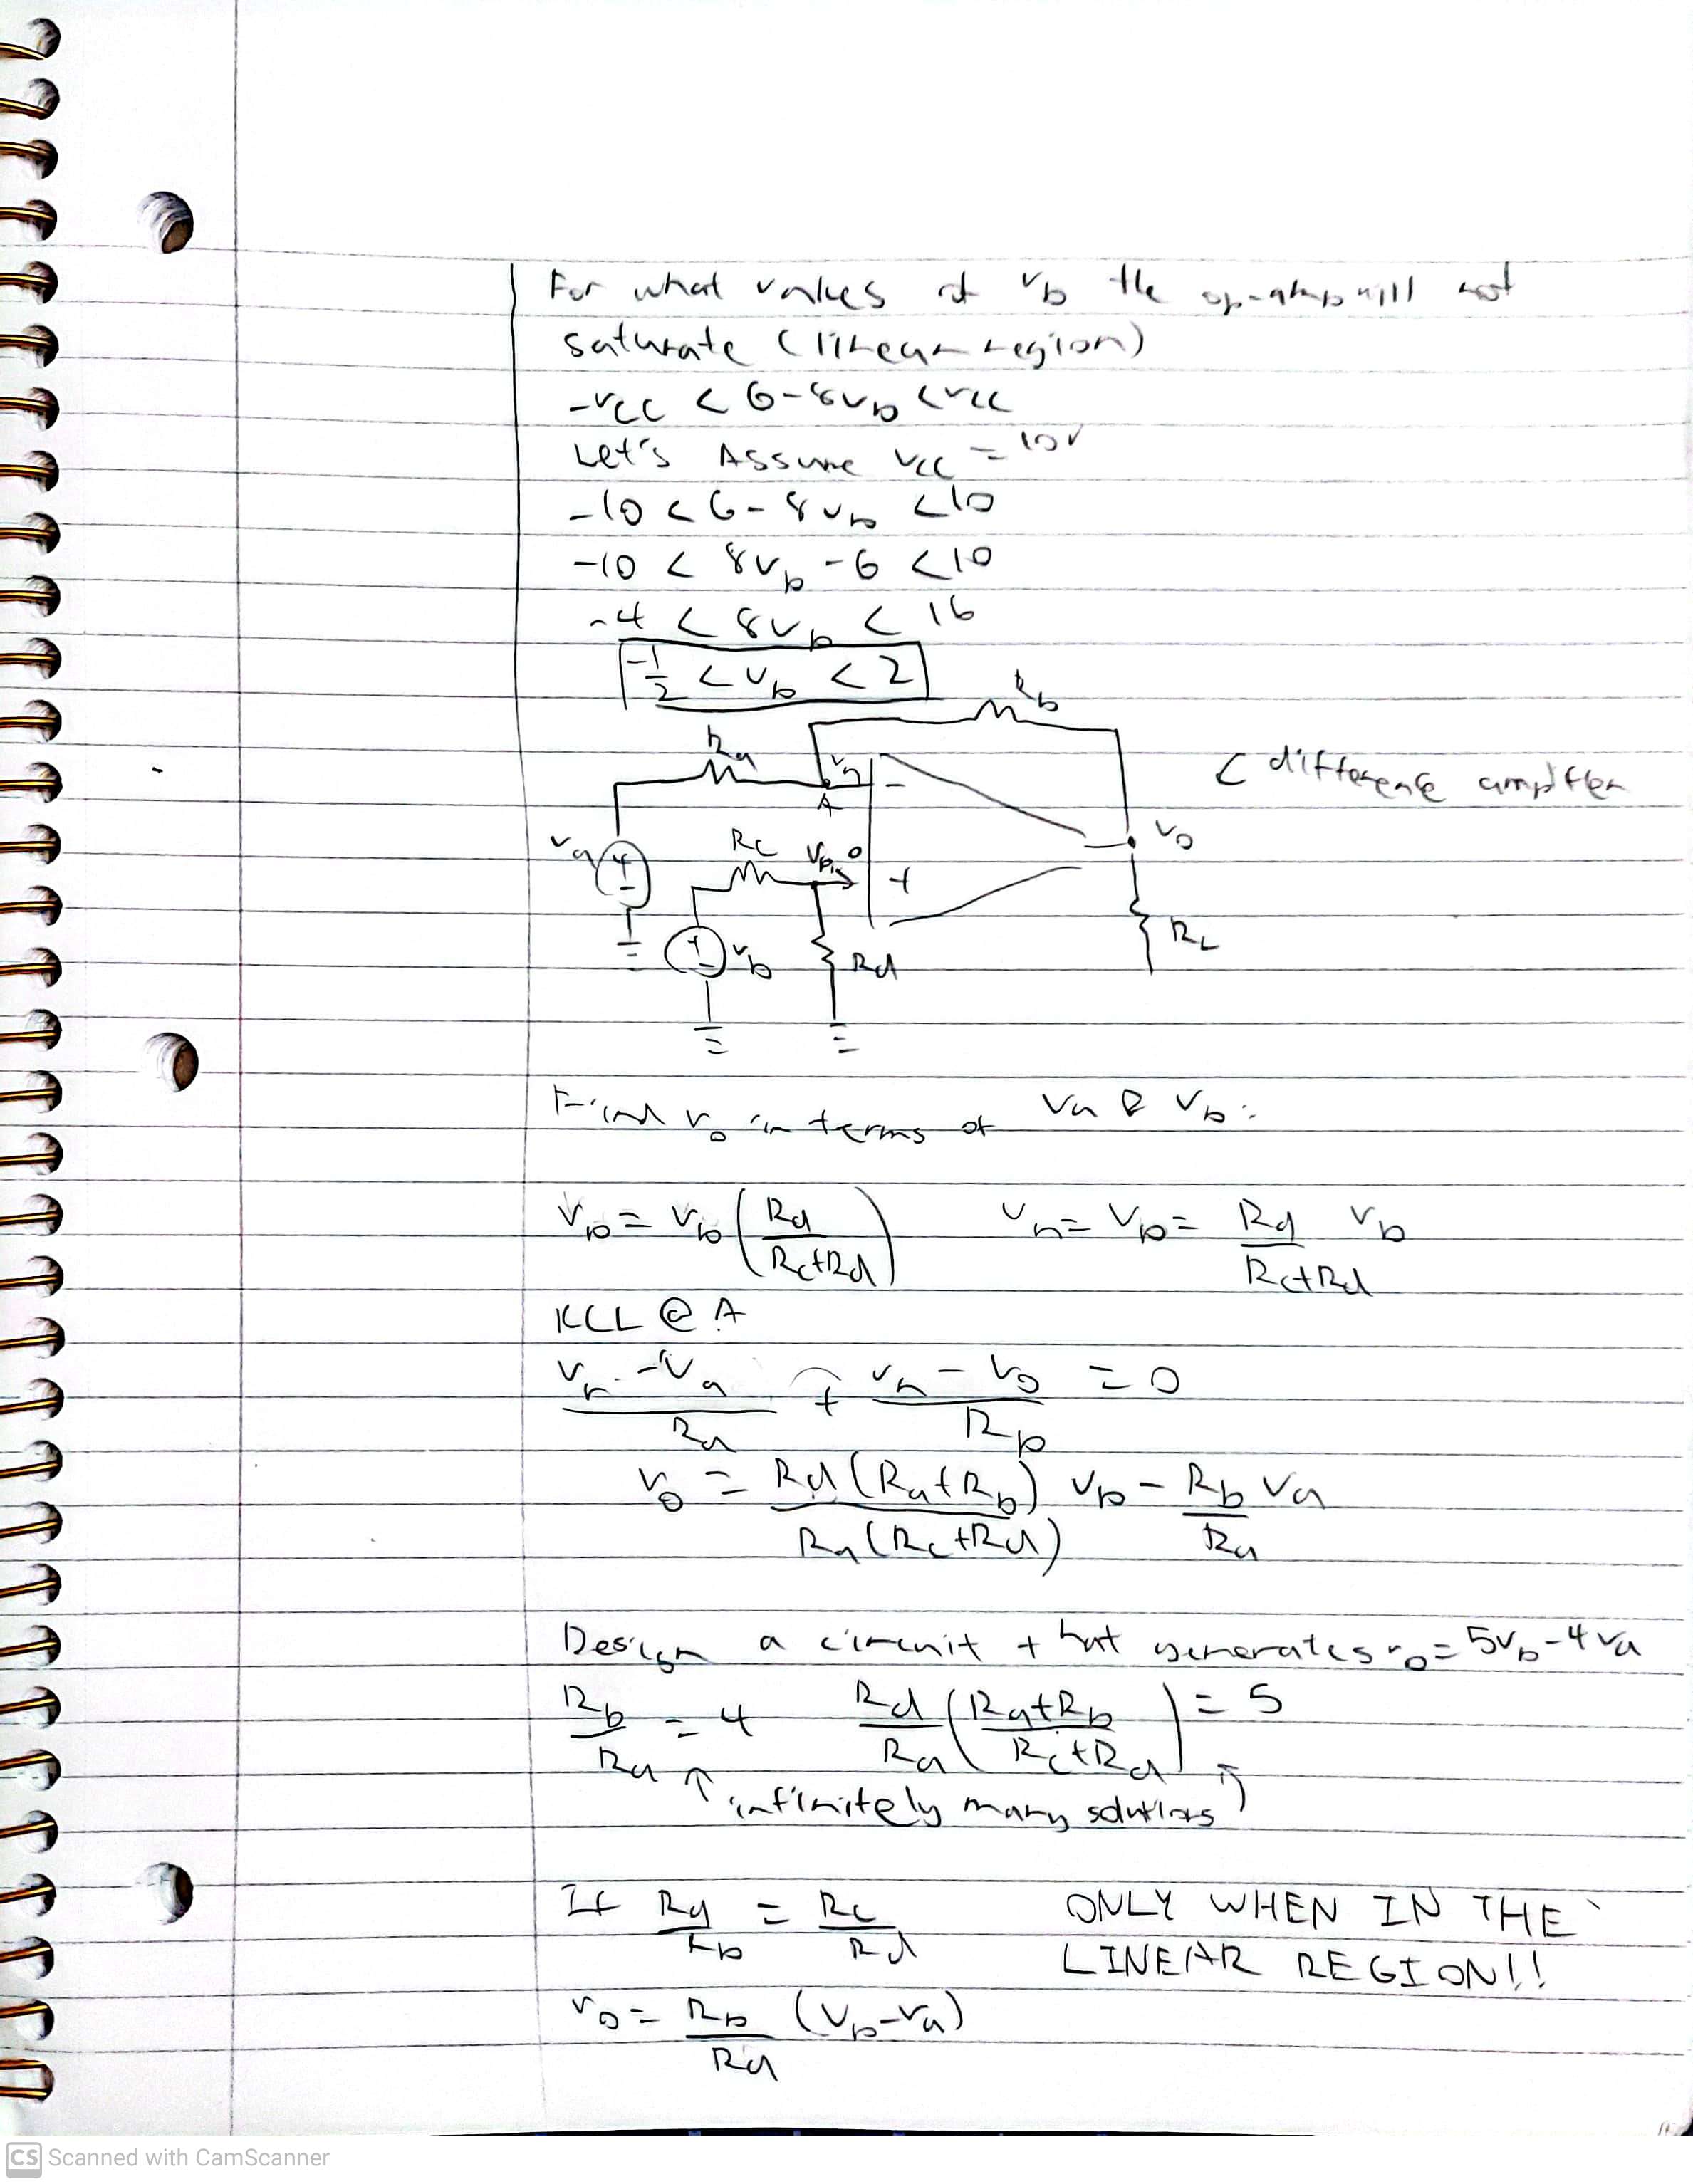 For what values of vb the op-amp will not
saturate (linear region)
-vcc < 6-8vb < vcc
Let's Assume vcc = 10V
-10 < 6-8vb < 10
-10 < 8vb - 6 < 10
-4 < 8vb < 16
-1/2 < vb < 2
Rb
Ra
vn
-
A
< difference amplifier
vo
va
+
-
Rc
vp
0
+
RL
+
-
vb
Rd
Find vo in terms of va & vb:
vp = vb (Rd/(Rc+Rd)) vn = vp = Rd/(Rc+Rd) vb
KCL @ A
(vn - va)/Ra + (vn - vo)/Rb = 0
vo = Rd(Ra+Rb)/(Ra(Rc+Rd)) vb - Rb/Ra va
Design a circuit that generates vo = 5vb - 4va
Rb/Ra = 4 Rd/Ra ((Ra+Rb)/(Rc+Rd)) = 5
↑ infinitely many solutions ↑
If Ra/Rb = Rc/Rd ONLY WHEN IN THE
LINEAR REGION!!
vo = Rb/Ra (vb-va)
CS Scanned with CamScanner